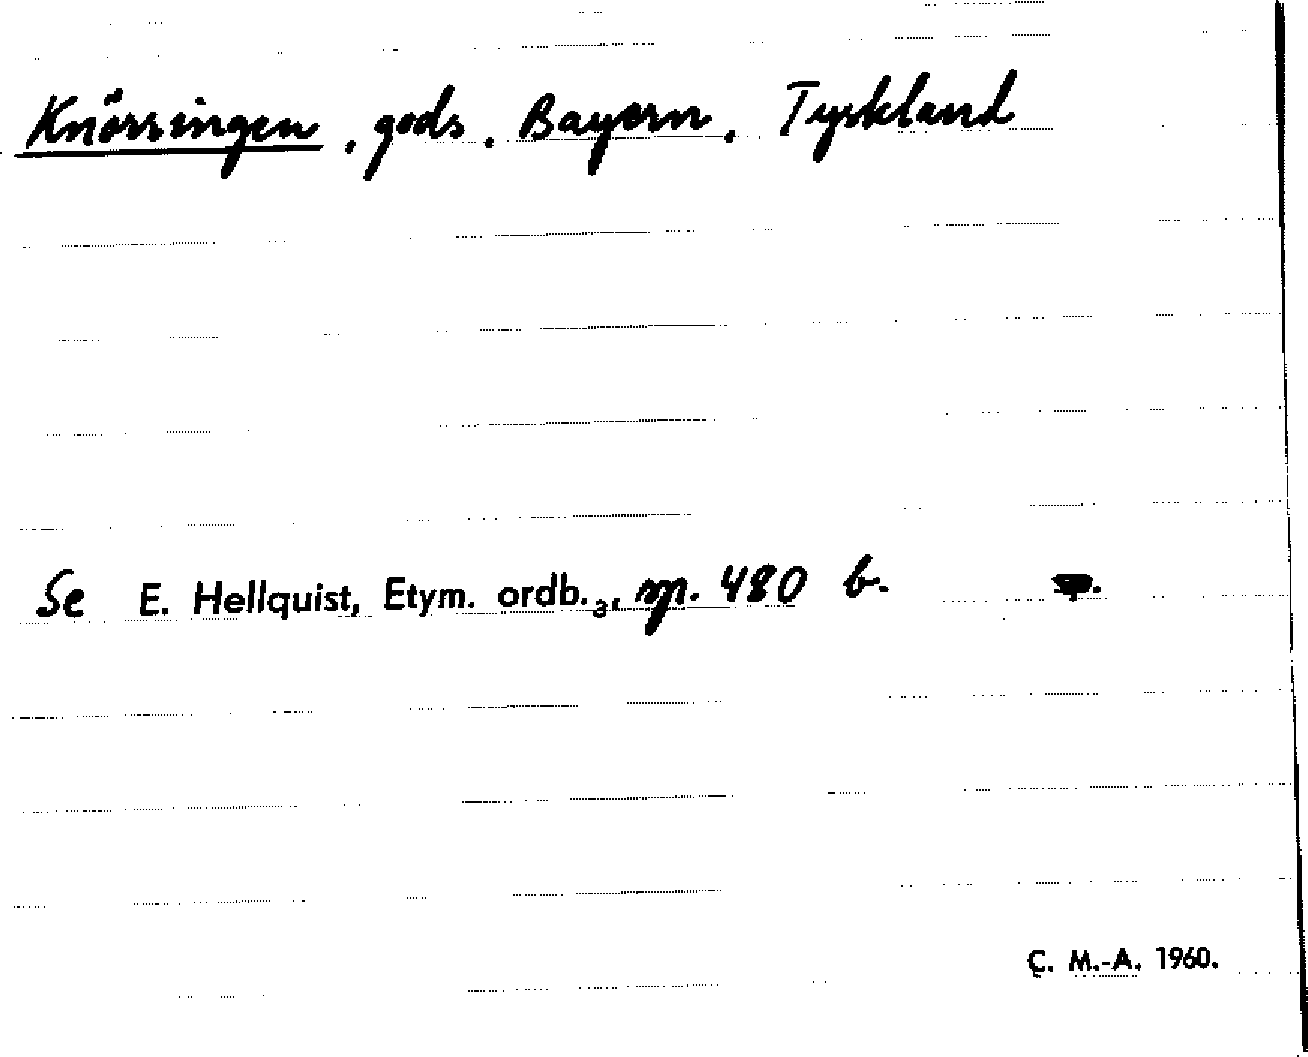 Knörringen, gods, Bayern, Tyskland
Se E. Hellquist, Etym. ordb.3, sp. 480 b.
C. M.-A. 1960.